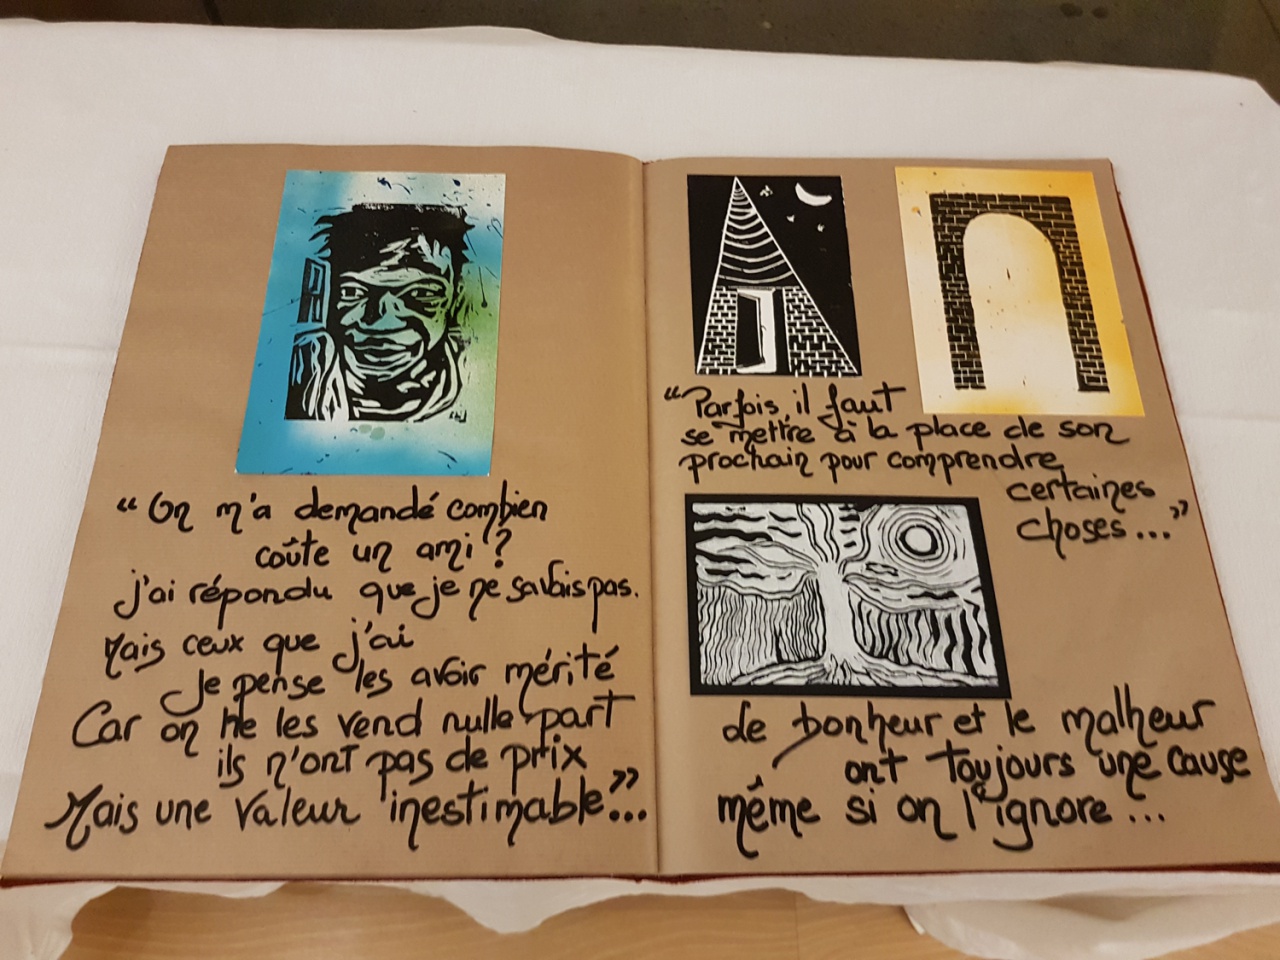 “On m'a demandé combien
coûte un ami ?
j'ai répondu que je ne savais pas.
Mais ceux que j'ai
Je pense les avoir mérité
Car on ne les vend nulle part
ils n'ont pas de prix
Mais une valeur inestimable”...
“Parfois, il faut
se mettre à la place de son
prochain pour comprendre
certaines
choses...”
Le bonheur et le malheur
ont toujours une cause
même si on l'ignore...